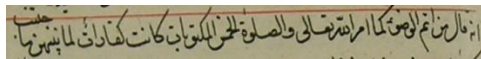 انه قال من اتم الوضوء كما امر الله تعالى والصلوة الخمس المكتوبات كانت كفارات لما بينهن ما